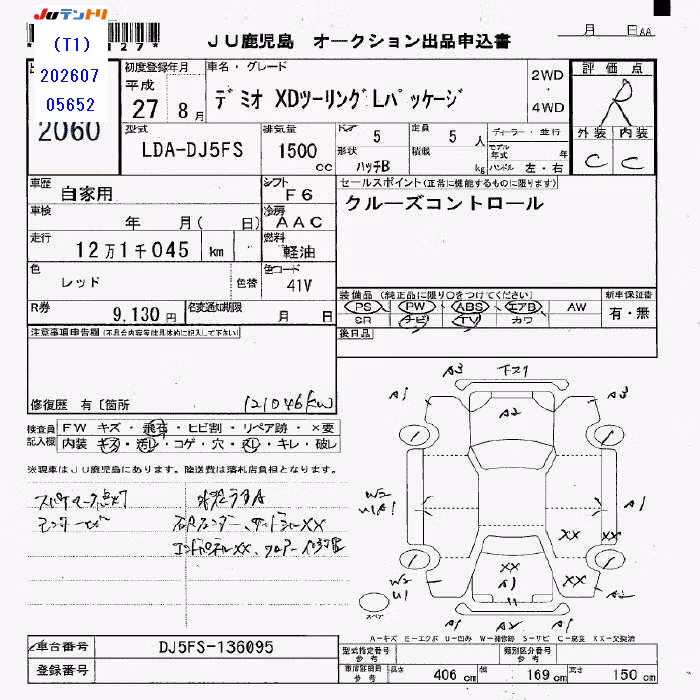 JUテントリ
(T1)
202607
05652
JU鹿児島 オークション出品申込書
月 日 AA
2060
初度登録年月 平成 27年 8月
車名・グレード
デミオ XDツーリング Lパッケージ
2WD ・ 4WD
評価点
R
外装 内装
C C
型式 LDA-DJ5FS
排気量 1500 cc
ドア 5
定員 5 人
形状 ハッチB
積載 kg
ディーラー・並行
モデル年式 年
ハンドル 左・右
車歴 自家用
シフト F6
セールスポイント(正常に機能するものに限ります)
クルーズコントロール
車検 年 月( 日)
冷房 AAC
走行 12万1千045 km
燃料 軽油
色 レッド 色替
色コード 41V
R券 9,130円
名変通知期限 月 日
装備品 (純正品に限り○をつけてください)
PS PW ABS エアB AW
SR ナビ TV カワ
新車保証書
有・無
後日品
注意事項申告欄(不具合内容等は具体的に記入して下さい)
修復歴 有〔箇所
(121046km)
検査員記入欄
FW キズ・飛石・ヒビ割・リペア跡・×要
内装 キズ・汚レ・コゲ・穴・スレ・キレ・破レ
※現車はJU鹿児島にあります。陸送費は落札店負担となります。
A3 下ス1
A1 A2 A3
W2 U1A1 A1
XX XX
XX A1 XX
W2 U1 A2
A1 A1
スペア
A-キズ E-エクボ U-凹み W-補修跡 S-サビ C-腐食 XX-交換済
車台番号 DJ5FS-136095
登録番号
型式指定番号 参考
類別区分番号 参考
車庫証明用 参考
長さ 406 cm 幅 169 cm 高さ 150 cm